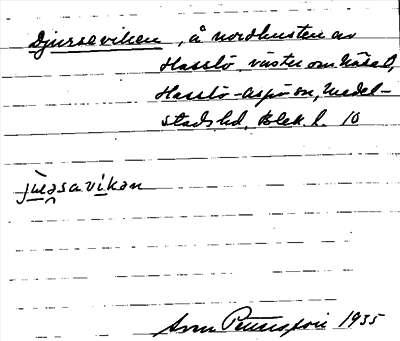 Djurseviken, å nordkusten av
Hasslö, väster om Näset,
Hasslö-Aspö sn, Medel-
stads hd, Blek. l. 10
juasavikan
1935